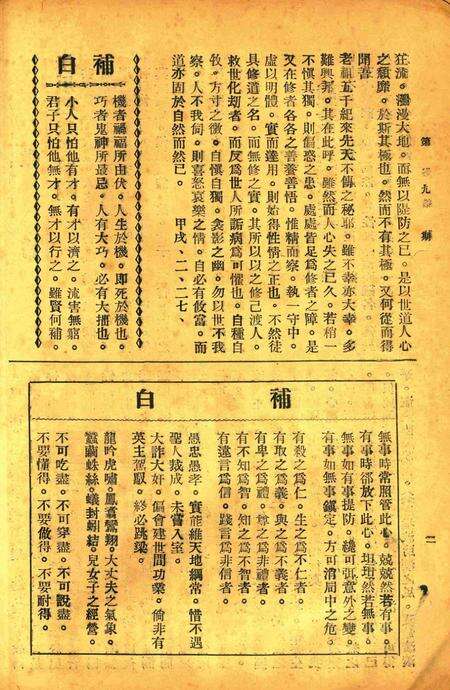 狂流。瀰漫大地。而無以隄防之已。是以世道人心
之頹靡。於斯其極也。然而不有其極。又何從而得
聞吾
老祖五千紀來先天不傳之秘耶。雖不幸亦大幸。多
難興邦。其在此呼。雖然而人心失之已久。若稍一
不愼其獨。則傷惑之患。處處皆足爲修者之障。是
又在修者各各之善養善悟。惟精而察。執一守中。
虛以明體。實而達用。則始得性情之正也。不然徒
具修道之名。而無修之實。其所以以之修己渡人。
救世化刼者。而反爲世人所詬病爲可懼也。自種自
收。方寸之微。自愼自獨。衾影之幽。勿以世不我
察。人不我伺。則喜怒哀樂之情。自必有攸當。而
道亦固於自然而然已。 甲戌、二、二七、
補白
機者禍福所由伏。人生於機。卽死於機也。
巧者鬼神所最忌。人有大巧。必有大拙也。
小人只怕他有才。有才以濟之。流害無窮。
君子只怕他無才。無才以行之。雖賢何補。
第 九 期
二
補白
無事時常照管此心。兢兢然若有事。
有事時卻放下此心。坦坦然若無事。
無事如有事提防。纔可弭意外之變。
有事如無事鎭定。方可消局中之危。
有殺之爲仁。生之爲不仁者。
有取之爲義。與之爲不義者。
有卑之爲禮。尊之爲非禮者。
有不知爲智。知之爲不智者。
有違言爲信。踐言爲非信者。
愚忠愚孝。實能維天地綱常。惜不遇
聖人裁成。未嘗入室。
大詐大奸。偏會建世間功業。倘非有
英主駕馭。終必跳梁。
龍吟虎嘯。鳳翥鸞翔。大丈夫之氣象。
蠶繭蛛絲。蟻封蚓結。兒女子之經營。
不可吃盡。不可穿盡。不可說盡。
不要懂得。不要做得。不要耐得。